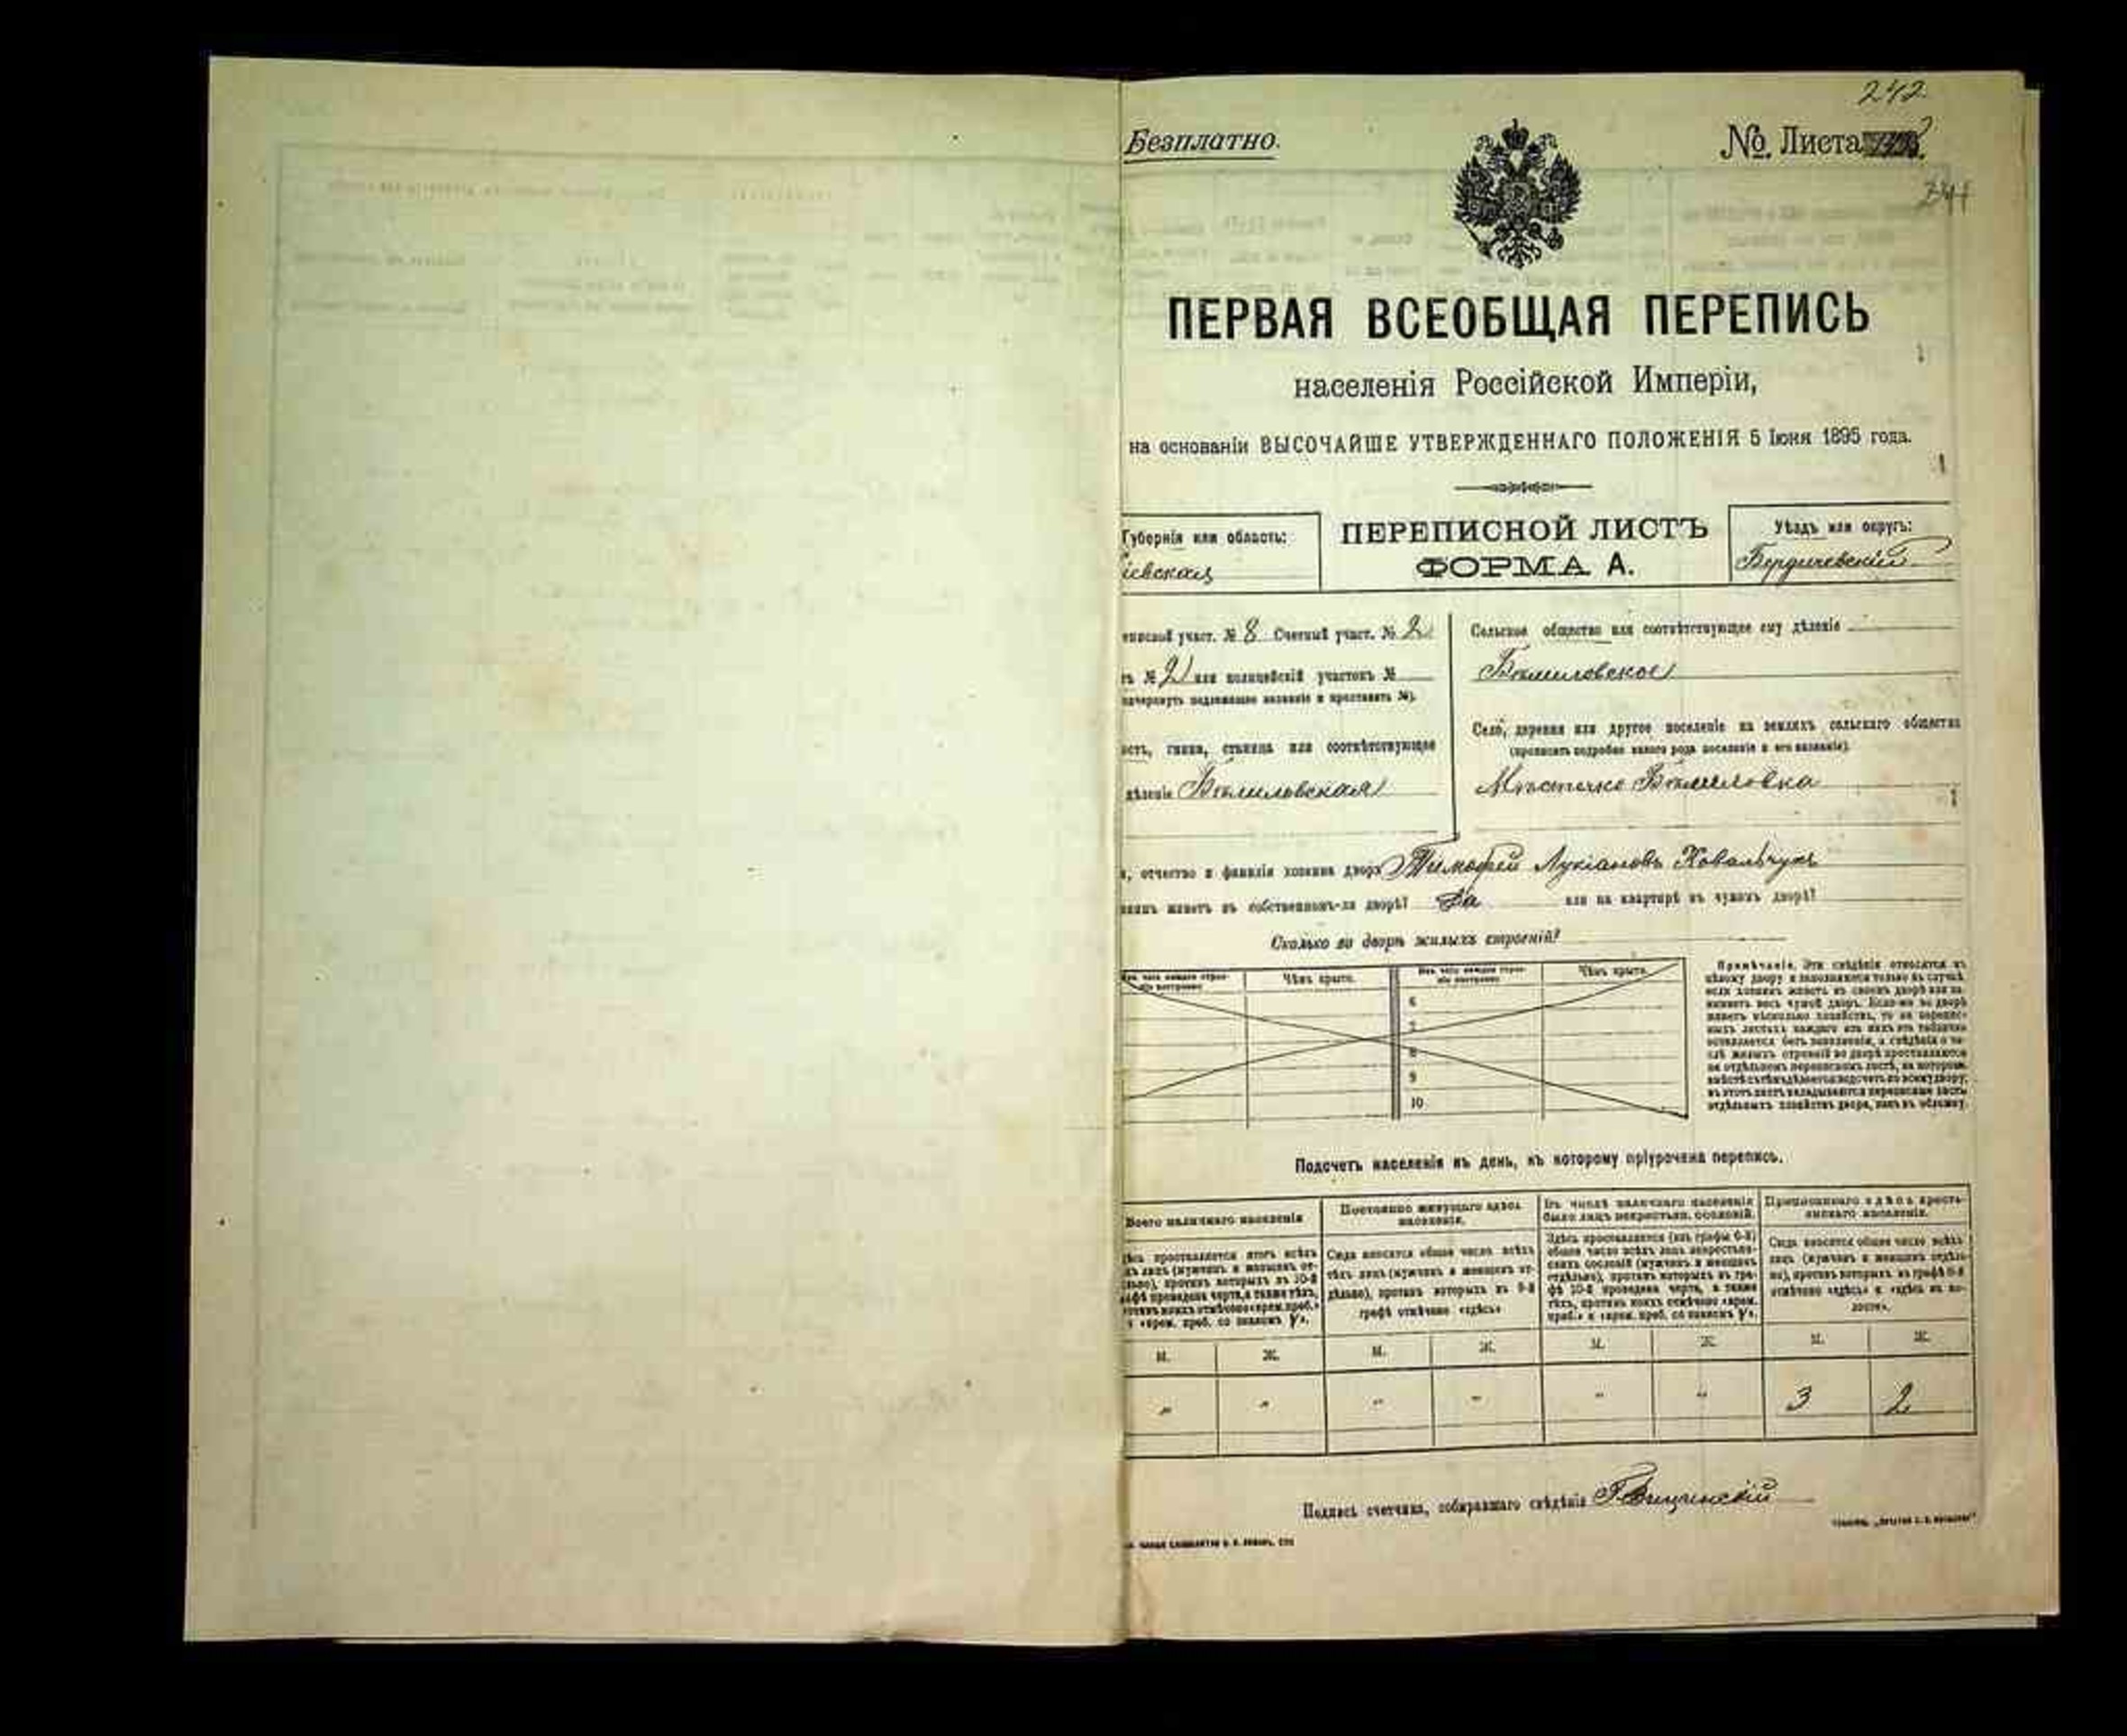 242
Безплатно.
№ Листа
241
ПЕРВАЯ ВСЕОБЩАЯ ПЕРЕПИСЬ
населенія Россійской Имперіи,
на основаніи ВЫСОЧАЙШЕ УТВЕРЖДЕННАГО ПОЛОЖЕНІЯ 5 Іюня 1895 года.
Губернія или область:
ПЕРЕПИСНОЙ ЛИСТЪ
Уѣздъ или округъ:
іевская
ФОРМА А.
Бердичевскій
писной участ. № 8 Счетный участ. № 2
Сельское общество или соотвѣтствующее ему дѣленіе
ъ № 2 или полицейскій участокъ №
Бѣлиловское
дчеркнуть надлежащее названіе и проставить №).
Село, деревня или другое поселеніе на земляхъ сельскаго общества
(прописать подробно какого рода поселеніе и его названіе).
ость, гмина, станица или соотвѣтствующее
дѣленіе Бѣлиловская
Мѣстечко Бѣлиловка
, отчество и фамилія хозяина двора Тимофей Лукіановъ Ковальчукъ
живетъ въ собственномъ-ли дворѣ? Да или на квартирѣ въ чужомъ дворѣ?
Сколько во дворѣ жилыхъ строеній?
Изъ чего каждое строе-
ніе построено
Чѣмъ крыто.
Изъ чего каждое строе-
ніе построено
Чѣмъ крыто.
6
7
8
9
10
Примѣчаніе. Эти свѣдѣнія относятся къ
цѣлому двору и заполняются только въ случаѣ
если хозяинъ живетъ въ своемъ дворѣ или за-
нимаетъ весь чужой дворъ. Если-же во дворѣ
живетъ нѣсколько хозяйствъ, то на перепис-
ныхъ листахъ каждаго изъ нихъ эта табличка
оставляется безъ заполненія, а свѣдѣнія о чи-
слѣ жилыхъ строеній во дворѣ проставляются
на отдѣльномъ переписномъ листѣ, на которомъ
вмѣстѣ съ тѣмъ дѣлается подсчетъ по всему двору;
въ этотъ листъ вкладываются переписные листы
отдѣльныхъ хозяйствъ двора, какъ въ обложку.
Подсчетъ населенія въ день, къ которому пріурочена перепись.
Всего наличнаго населенія
Постоянно живущаго здѣсь
населенія.
Въ числѣ наличнаго населенія
было лицъ некрестьян. сословій.
Приписаннаго здѣсь кресть-
янскаго населенія.
дѣсь проставляется итогъ всѣхъ
хъ лицъ (мужчинъ и женщинъ от-
дѣльно), противъ которыхъ въ 10-й
рафѣ проведена черта, а также тѣхъ,
отивъ коихъ отмѣчено «врем. проб.»
и «врем. проб. со знакомъ V».
Сюда вносится общее число всѣхъ
тѣхъ лицъ (мужчинъ и женщинъ от-
дѣльно), противъ которыхъ въ 9-й
графѣ отмѣчено «здѣсь»
Здѣсь проставляется (изъ графы 6-й)
общее число всѣхъ лицъ некрестьян-
скихъ сословій (мужчинъ и женщинъ
отдѣльно), противъ которыхъ въ гра-
фѣ 10-й проведена черта, а также
тѣхъ, противъ коихъ отмѣчено «врем.
проб.» и «врем. проб. со знакомъ V».
Сюда вносится общее число всѣхъ
лицъ (мужчинъ и женщинъ отдѣль-
но), противъ которыхъ въ графѣ 8-й
отмѣчено «здѣсь» и «здѣсь въ во-
лости».
М. Ж. М. Ж. М. Ж. М. Ж.
„ „ „ „ „ „ 3 2
Подпись счетчика, собиравшаго свѣдѣнія